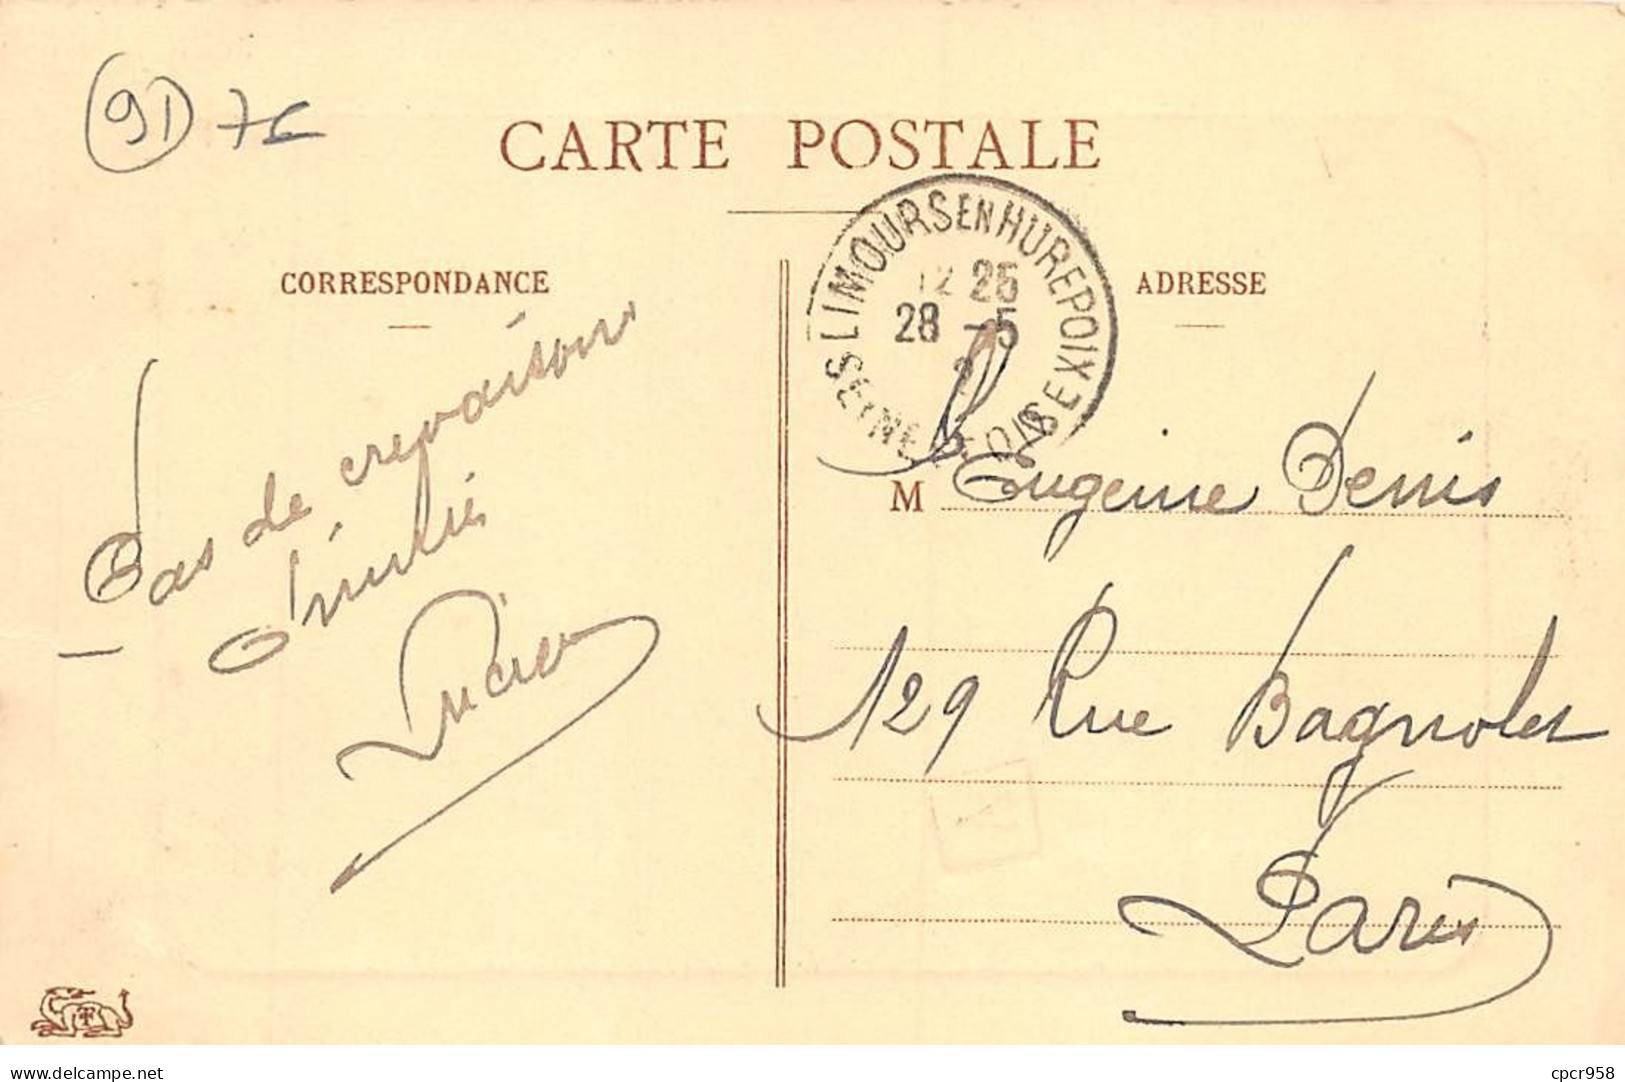 91 7€
CARTE POSTALE
CORRESPONDANCE
ADRESSE
LIMOURS EN HUREPOIX
12 25
28 - 5
SEINE ET OISE
Pas de crevaison
Amitiés
Lucien
M Eugenie Denis
129 Rue Bagnolet
Paris
delcampe.net
cpcr958